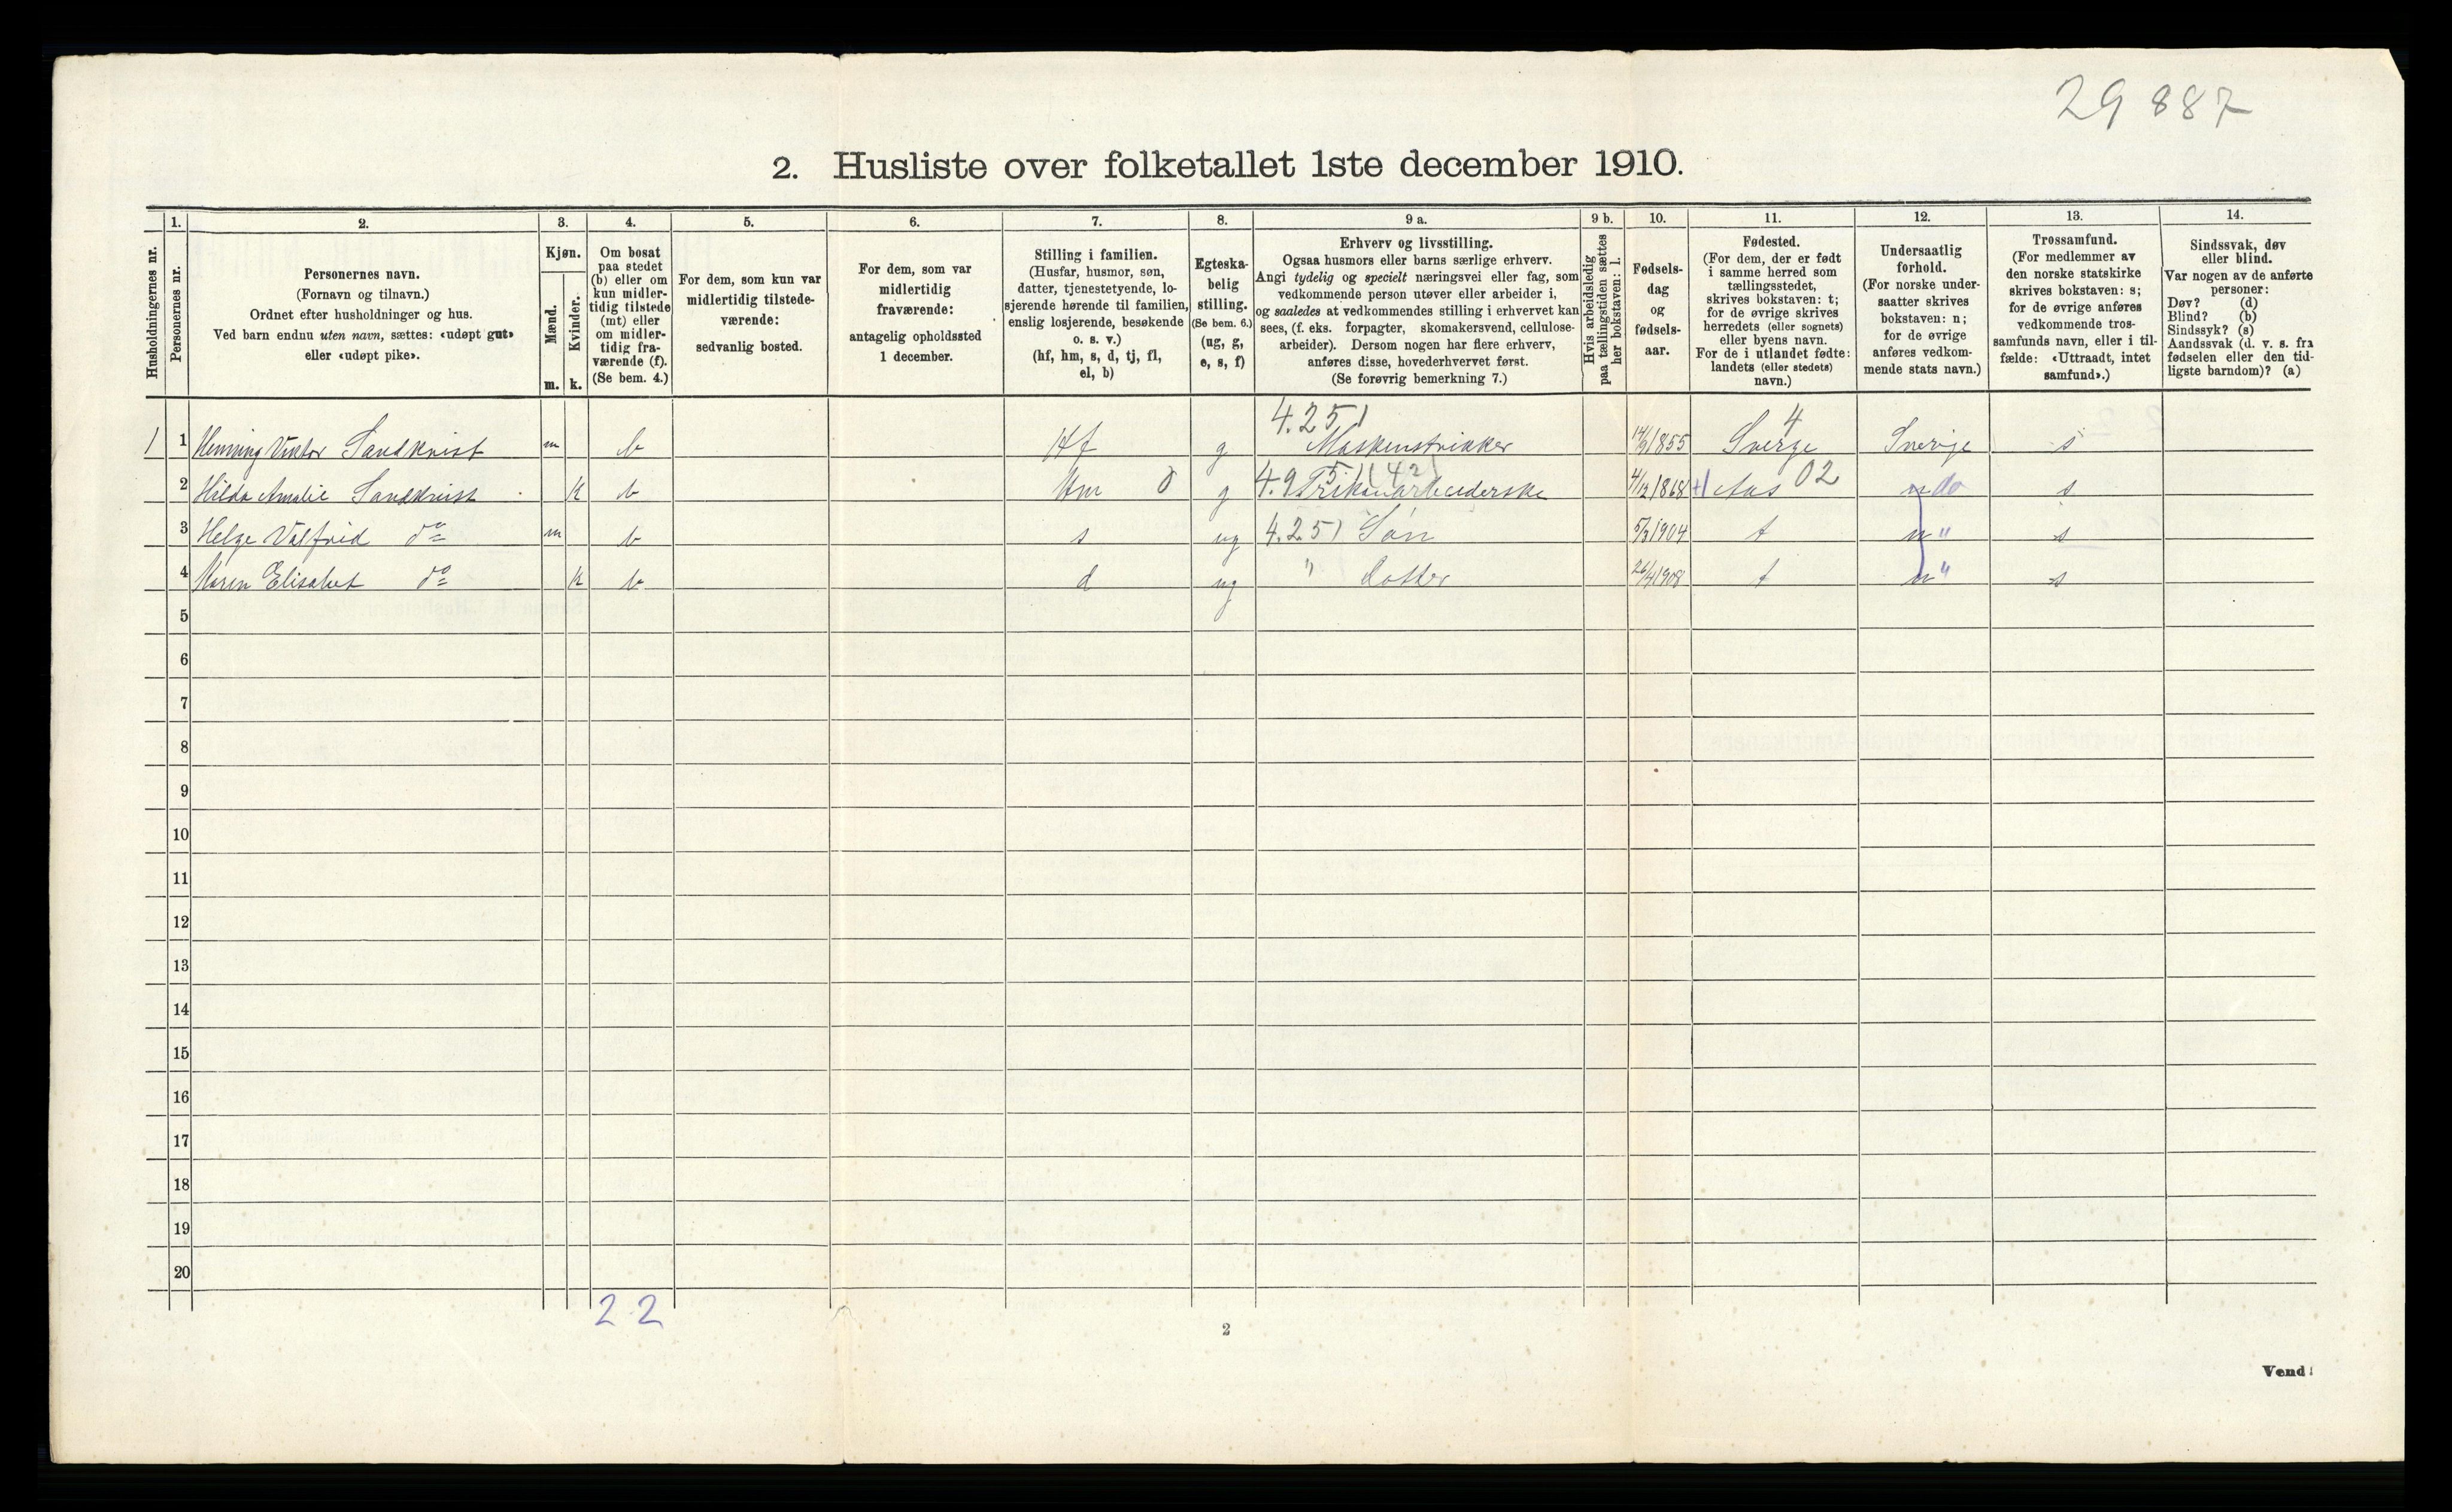 29 887
2. Husliste over folketallet 1ste december 1910.
Husholdningernes nr.
1.
Personernes nr.
2.
Personernes navn.
(Fornavn og tilnavn.)
Ordnet efter husholdninger og hus.
Ved barn endnu uten navn, sættes: «udøpt gut»
eller «udøpt pike».
3.
Kjøn.
Mænd.
Kvinder.
m.
k.
4.
Om bosat
paa stedet
(b) eller om
kun midler-
tidig tilstede
(mt) eller
om midler-
tidig fra-
værende (f).
(Se bem. 4.)
5.
For dem, som kun var
midlertidig tilstede-
værende:
sedvanlig bosted.
6.
For dem, som var
midlertidig
fraværende:
antagelig opholdssted
1 december.
7.
Stilling i familien.
(Husfar, husmor, søn,
datter, tjenestetyende, lo-
sjerende hørende til familien,
enslig losjerende, besøkende
o. s. v.)
(hf, hm, s, d, tj, fl,
el, b)
8.
Egteska-
belig
stilling.
(Se bem. 6.)
(ug, g,
e, s, f)
9 a.
Erhverv og livsstilling.
Ogsaa husmors eller barns særlige erhverv.
Angi tydelig og specielt næringsvei eller fag, som
vedkommende person utøver eller arbeider i,
og saaledes at vedkommendes stilling i erhvervet kan
sees, (f. eks. forpagter, skomakersvend, cellulose-
arbeider). Dersom nogen har flere erhverv,
anføres disse, hovederhvervet først.
(Se forøvrig bemerkning 7.)
9 b.
Hvis arbeidsledig
paa tællingstiden sættes
her bokstaven: l.
10.
Fødsels-
dag
og
fødsels-
aar.
11.
Fødested.
(For dem, der er født
i samme herred som
tællingsstedet,
skrives bokstaven: t;
for de øvrige skrives
herredets (eller sognets)
eller byens navn.
For de i utlandet fødte:
landets (eller stedets)
navn.)
12.
Undersaatlig
forhold.
(For norske under-
saatter skrives
bokstaven: n;
for de øvrige
anføres vedkom-
mende stats navn.)
13.
Trossamfund.
(For medlemmer av
den norske statskirke
skrives bokstaven: s;
for de øvrige anføres
vedkommende tros-
samfunds navn, eller i til-
fælde: «Uttraadt, intet
samfund».)
14.
Sindssvak, døv
eller blind.
Var nogen av de anførte
personer:
Døv? (d)
Blind? (b)
Sindssyk? (s)
Aandssvak (d. v. s. fra
fødselen eller den tid-
ligste barndom)? (a)
4.251 4
1 1 Henning Viktor Sandkvist m b Hf g Maskinstrikker 14/9 1855 Sverge Sverige s
2 Hilda Amalie Sandkvist k b Hm g Trikoarbeiderske 4/12 1868 Aas 02 n do s
3 Helge Valfrid do m b s ug 4.251 Søn 5/3 1904 t n " s
4 Karen Elisabet do k b d ug " Datter 26/4 1908 t n " s
5
6
7
8
9
10
11
12
13
14
15
16
17
18
19
20
2 2
2
Vend!